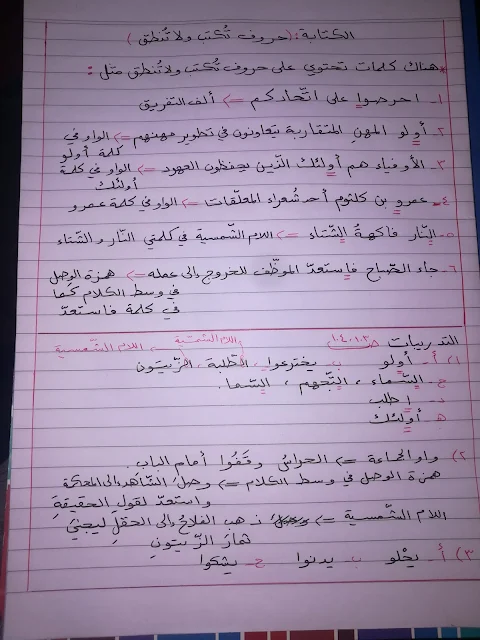 الكتابة: (حروف تُكتب ولا تُنطق)
* هناك كلمات تحتوي على حروف تُكتب ولا تُنطق مثل:
١- احرصوا على اتّحادكم => ألف التفريق
٢- أولو المهن المتقاربة يتعاونون في تطوير مهنهم => الواو في
كلمة أولو
٣- الأوفياء هم أولئك الذين يحفظون العهود => الواو في كلمة
أولئك
٤- عمرو بن كلثوم أحد شعراء المعلّقات => الواو في كلمة عمرو
٥- النّار فاكهةُ الشّتاء => اللام الشّمسية في كلمتي النّار والشّتاء
٦- جاء الصّباح فاستعدّ الموظّف للخروج إلى عمله => همزة الوصل
في وسط الكلام كما
في كلمة فاستعدّ
التدريبات ص١٠٣، ١٠٤
اللام الشمسية
اللام الشّمسية
١) أ- أولو ب- يخترعوا، الطّلبة، الزّيتون
ج- السّماء، التّجهم،
د- اطلب
هـ- أولئك
٢) واو الجماعة => الحراسُ وقَفُوا أمام الباب.
همزة الوصل في وسط الكلام => وصلَ الشّاهد إلى المحكمة
واستعدّ لقولِ الحقيقةِ
اللام الشّمسية => ذهب الفلاحُ إلى الحقلِ ليجنيَ
ثمارَ الزّيتونِ
٣) أ- يحْلو ب- يدنوا ج- يشكوا